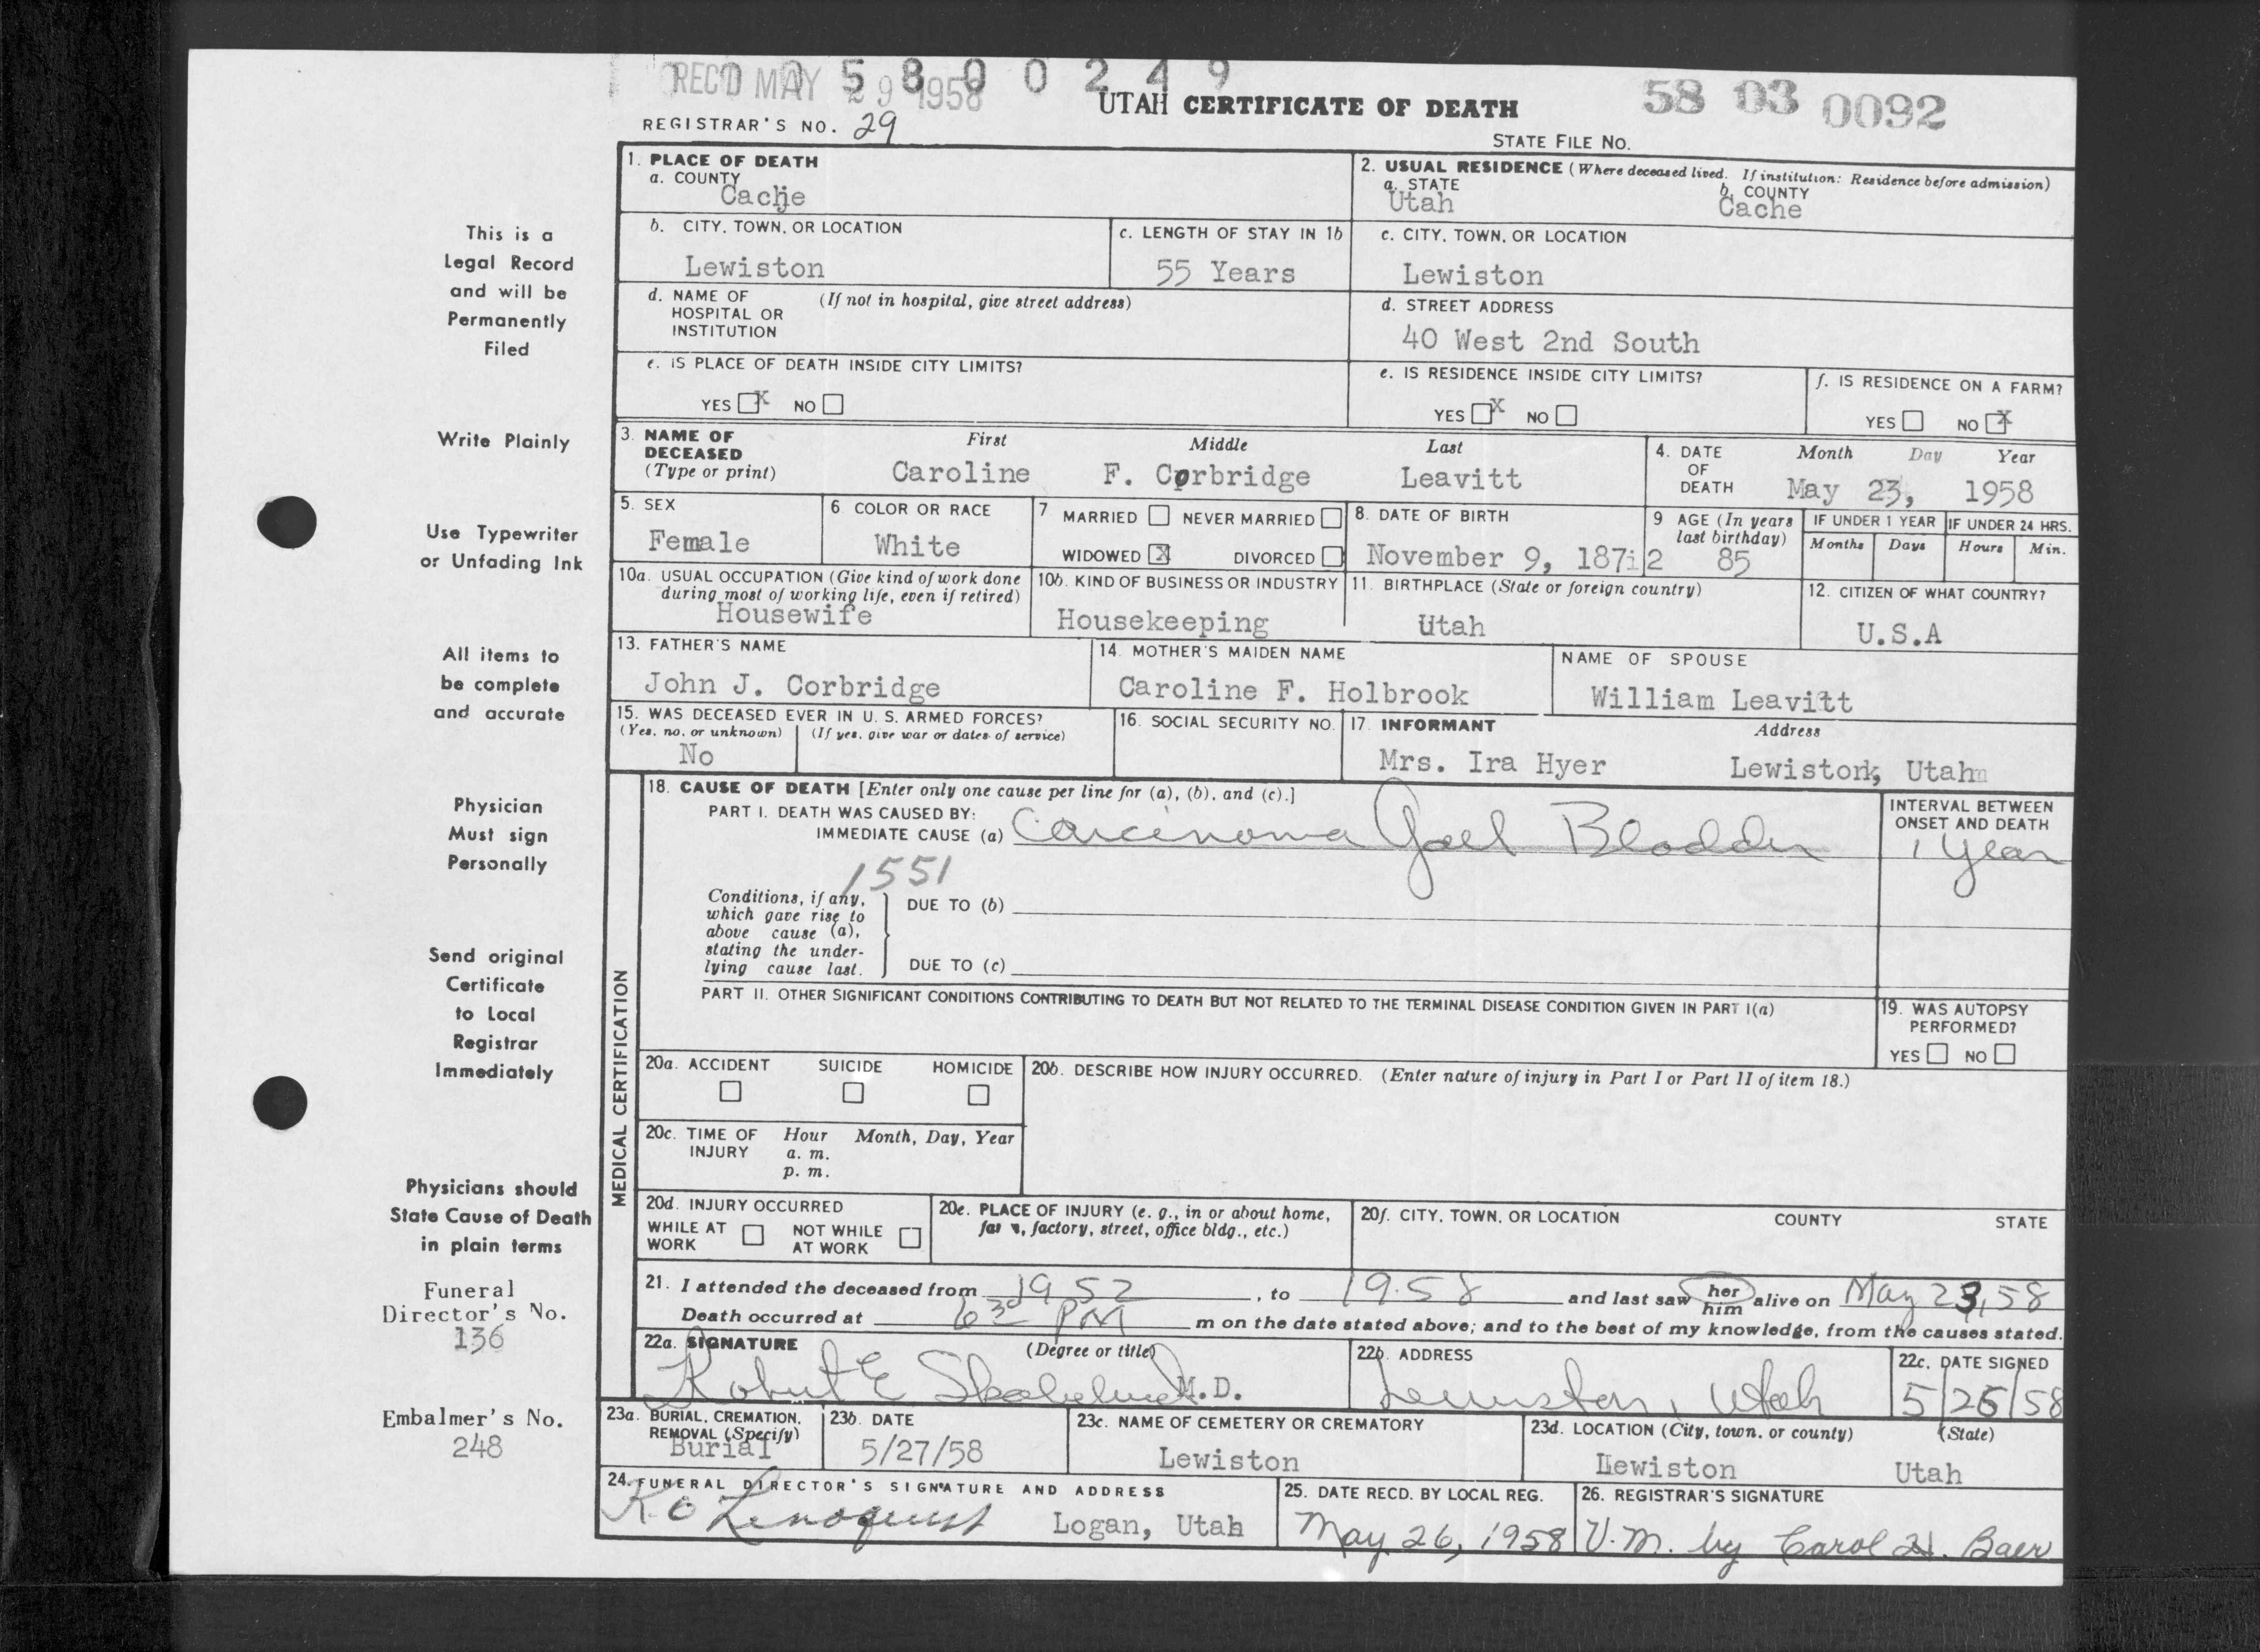 REC'D MAY 29 1958
5 8 0 0 2 4 9
UTAH CERTIFICATE OF DEATH
58 03 0092
REGISTRAR'S NO. 29
STATE FILE NO.
This is a
Legal Record
and will be
Permanently
Filed
Write Plainly
Use Typewriter
or Unfading Ink
All items to
be complete
and accurate
Physician
Must sign
Personally
Send original
Certificate
to Local
Registrar
Immediately
Physicians should
State Cause of Death
in plain terms
Funeral
Director's No.
136
Embalmer's No.
248
1. PLACE OF DEATH
a. COUNTY
Cache
2. USUAL RESIDENCE (Where deceased lived. If institution: Residence before admission)
a. STATE b. COUNTY
Utah Cache
b. CITY, TOWN, OR LOCATION
Lewiston
c. LENGTH OF STAY IN 1b
55 Years
c. CITY, TOWN, OR LOCATION
Lewiston
d. NAME OF (If not in hospital, give street address)
HOSPITAL OR
INSTITUTION
d. STREET ADDRESS
40 West 2nd South
e. IS PLACE OF DEATH INSIDE CITY LIMITS?
YES X NO
e. IS RESIDENCE INSIDE CITY LIMITS?
YES X NO
f. IS RESIDENCE ON A FARM?
YES NO X
3. NAME OF First Middle Last
DECEASED
(Type or print) Caroline F. Corbridge Leavitt
4. DATE Month Day Year
OF
DEATH May 23, 1958
5. SEX
Female
6. COLOR OR RACE
White
7 MARRIED NEVER MARRIED
WIDOWED X DIVORCED
8. DATE OF BIRTH
November 9, 1872
9 AGE (In years
last birthday)
85
IF UNDER 1 YEAR IF UNDER 24 HRS.
Months Days Hours Min.
10a. USUAL OCCUPATION (Give kind of work done
during most of working life, even if retired)
Housewife
10b. KIND OF BUSINESS OR INDUSTRY
Housekeeping
11. BIRTHPLACE (State or foreign country)
Utah
12. CITIZEN OF WHAT COUNTRY?
U.S.A
13. FATHER'S NAME
John J. Corbridge
14. MOTHER'S MAIDEN NAME
Caroline F. Holbrook
NAME OF SPOUSE
William Leavitt
15. WAS DECEASED EVER IN U. S. ARMED FORCES?
(Yes, no, or unknown) (If yes, give war or dates of service)
No
16. SOCIAL SECURITY NO.
17. INFORMANT Address
Mrs. Ira Hyer Lewiston, Utah
MEDICAL CERTIFICATION
18. CAUSE OF DEATH [Enter only one cause per line for (a), (b), and (c).]
PART I. DEATH WAS CAUSED BY:
IMMEDIATE CAUSE (a) Carcinoma Gall Bladder
INTERVAL BETWEEN
ONSET AND DEATH
1 year
1551
Conditions, if any,
which gave rise to
above cause (a),
stating the under-
lying cause last.
DUE TO (b)
DUE TO (c)
PART II. OTHER SIGNIFICANT CONDITIONS CONTRIBUTING TO DEATH BUT NOT RELATED TO THE TERMINAL DISEASE CONDITION GIVEN IN PART I(a)
19. WAS AUTOPSY
PERFORMED?
YES NO
20a. ACCIDENT SUICIDE HOMICIDE
20b. DESCRIBE HOW INJURY OCCURRED. (Enter nature of injury in Part I or Part II of item 18.)
20c. TIME OF Hour Month, Day, Year
INJURY a. m.
p. m.
20d. INJURY OCCURRED
WHILE AT NOT WHILE
WORK AT WORK
20e. PLACE OF INJURY (e. g., in or about home,
farm, factory, street, office bldg., etc.)
20f. CITY, TOWN, OR LOCATION COUNTY STATE
21. I attended the deceased from 1952, to 1958 and last saw her him alive on May 23, 58
Death occurred at 6 30 PM m on the date stated above; and to the best of my knowledge, from the causes stated.
22a. SIGNATURE (Degree or title)
Robert E Skabelund M.D.
22b. ADDRESS
Lewiston, Utah
22c. DATE SIGNED
5/26/58
23a. BURIAL, CREMATION,
REMOVAL (Specify)
Burial
23b. DATE
5/27/58
23c. NAME OF CEMETERY OR CREMATORY
Lewiston
23d. LOCATION (City, town, or county) (State)
Lewiston Utah
24. FUNERAL DIRECTOR'S SIGNATURE AND ADDRESS
Logan, Utah
25. DATE RECD. BY LOCAL REG.
May 26, 1958
26. REGISTRAR'S SIGNATURE
V.M. by Carol H. Baer